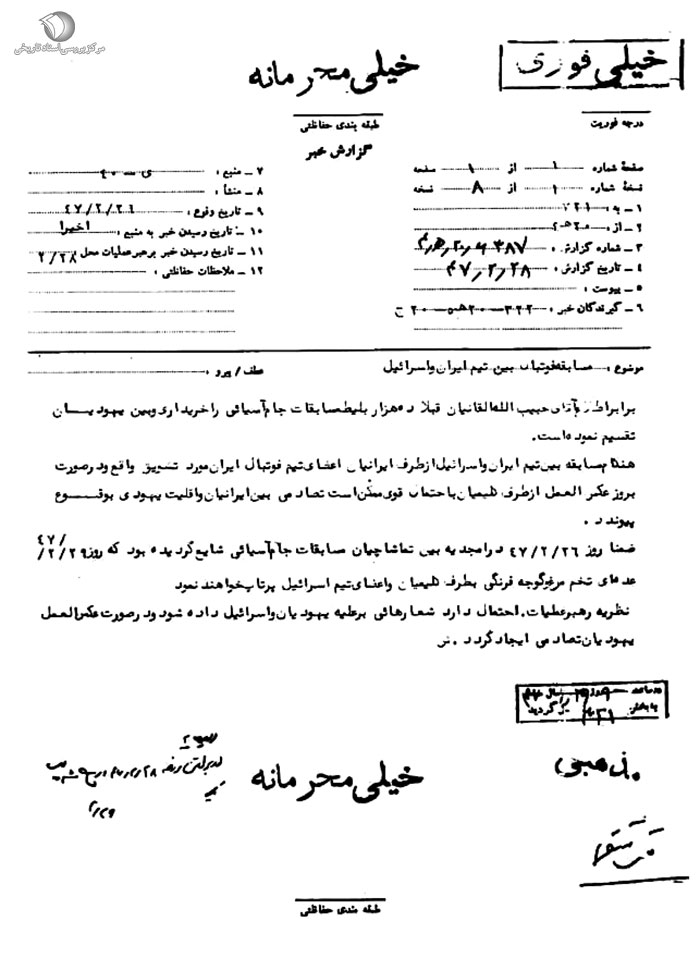 مرکز بررسی اسناد تاریخی
خیلی محرمانه
خیلی فوری
طبقه بندی حفاظتی
درجه فوریت
گزارش خبر
صفحهٔ شماره ۱ از ۱ صفحه
نسخهٔ شماره ۱ از ۸ نسخه
۱ ـ به : ۷۲۱
۲ ـ از : ۲۰ ه
۳ ـ شماره گزارش :
۴ ـ تاریخ گزارش : ۴۷٫۲٫۲۸
۵ ـ پیوست :
۶ ـ گیرندگان خبر : ۳۲۲ـ۲۰ه۵ـ۲۰۰ ح
۷ ـ منبع :
۸ ـ منشأ :
۹ ـ تاریخ وقوع : ۴۷/۲/۲۶
۱۰ ـ تاریخ رسیدن خبر به منبع : اخیرا
۱۱ ـ تاریخ رسیدن خبر برهبر عملیات محل ۲/۲۸
۱۲ ـ ملاحظات حفاظتی :
موضوع : مسابقه فوتبال بین تیم ایران واسرائیل
عطف / پیرو :
برابر اظهار آقای حبیب الله القانیان قبلا ده هزار بلیط مسابقات جام آسیائی را خریداری وبین یهودیان
تقسیم نموده است.
هنگام مسابقه بین تیم ایران واسرائیل از طرف ایرانیان اعضای تیم فوتبال ایران مورد تشویق واقع ودر صورت
بروز عکس العمل از طرف کلیمیان با احتمال قوی ممکن است تصادمی بین ایرانیان واقلیت یهودی بوقوع
پیوندد .
ضمنا روز ۴۷/۲/۲۶ در امجدیه بین تماشاچیان مسابقات جام آسیائی شایع گردیده بود که روز ۴۷/۲/۲۹
عده ای تخم مرغ وگوجه فرنگی بطرف کلیمیان واعضای تیم اسرائیل پرتاب خواهند نمود
نظریه رهبر عملیات. احتمال دارد شعارهائی برعلیه یهودیان واسرائیل داده شود ودر صورت عکس العمل
یهودیان تصادمی ایجاد گردد .
خیلی محرمانه
۲/۲۹
طبقه بندی حفاظتی